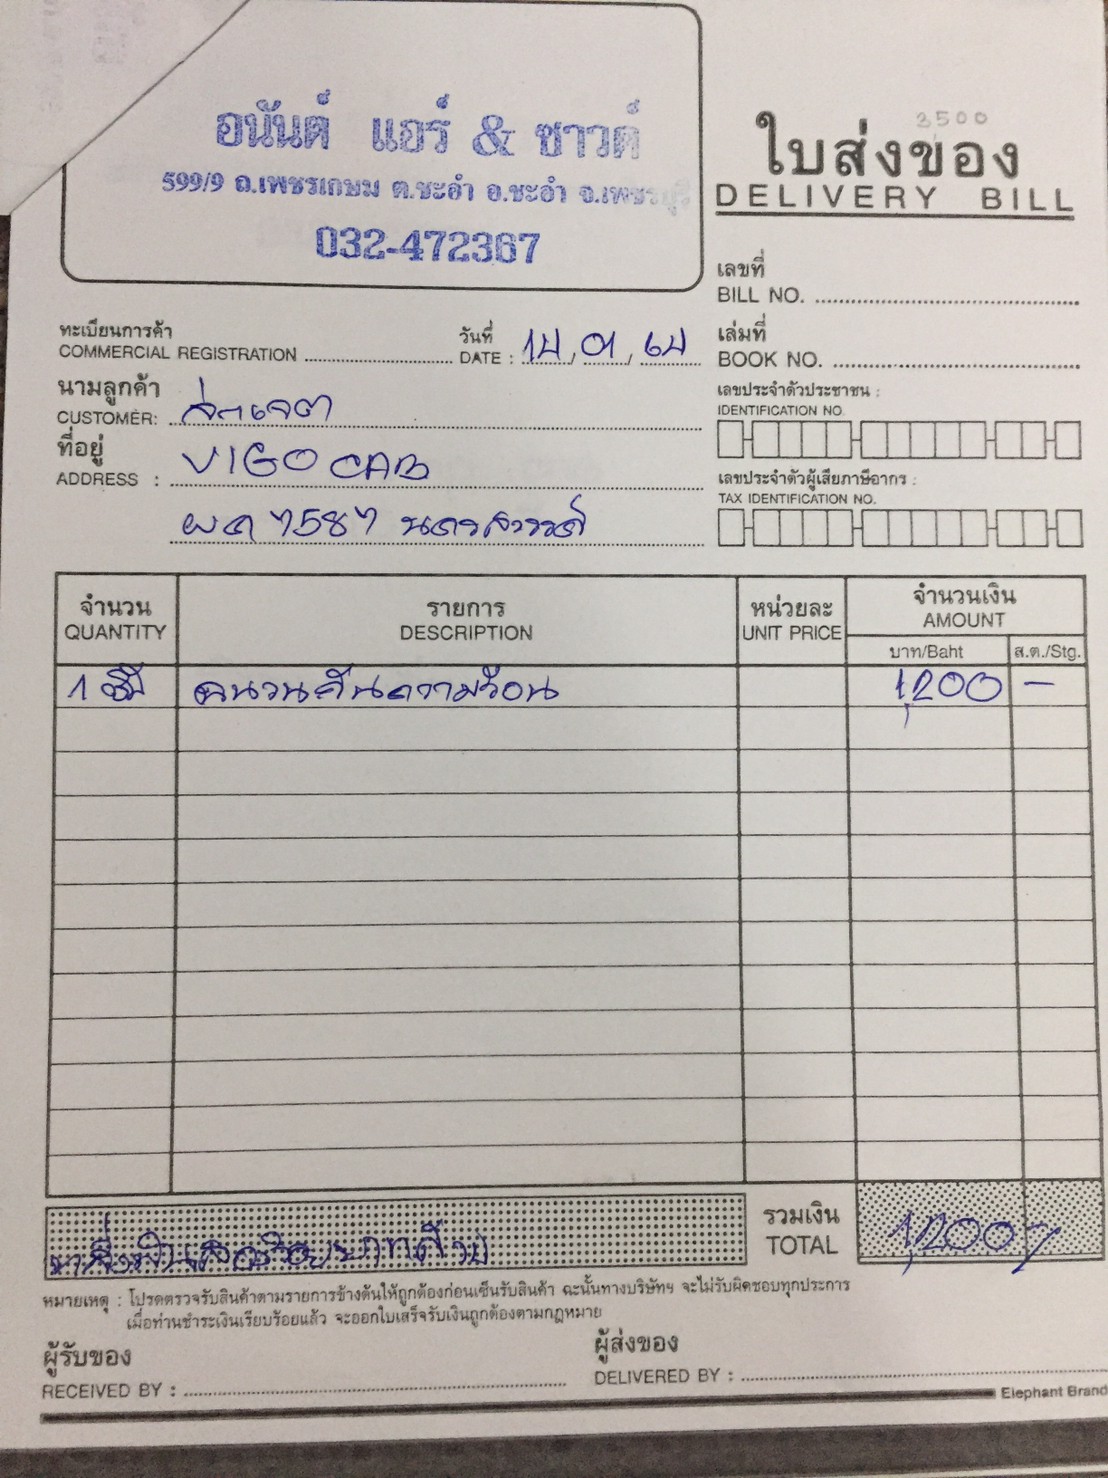 อนันต์ แอร์ & ซาวด์
599/9 ถ.เพชรเกษม ต.ชะอำ อ.ชะอำ จ.เพชรบุรี
032-472367
3500
ใบส่งของ
DELIVERY BILL
เลขที่
BILL NO.
ทะเบียนการค้า
COMMERCIAL REGISTRATION
วันที่
DATE : 14, 01, 64
เล่มที่
BOOK NO.
นามลูกค้า
CUSTOMER:
ที่อยู่
ADDRESS : VIGO CAB
ผต 7587 นครสวรรค์
เลขประจำตัวประชาชน :
IDENTIFICATION NO.
เลขประจำตัวผู้เสียภาษีอากร :
TAX IDENTIFICATION NO.
จำนวน รายการ หน่วยละ จำนวนเงิน
QUANTITY DESCRIPTION UNIT PRICE AMOUNT
บาท/Baht ส.ต./Stg.
1 ฉนวนกันความร้อน 1,200 –
หนึ่งพันสองร้อยบาทถ้วน
รวมเงิน
TOTAL 1,200
หมายเหตุ : โปรดตรวจรับสินค้าตามรายการข้างต้นให้ถูกต้องก่อนเซ็นรับสินค้า ฉะนั้นทางบริษัทฯ จะไม่รับผิดชอบทุกประการ
เมื่อท่านชำระเงินเรียบร้อยแล้ว จะออกใบเสร็จรับเงินถูกต้องตามกฎหมาย
ผู้รับของ
RECEIVED BY :
ผู้ส่งของ
DELIVERED BY :
Elephant Brand